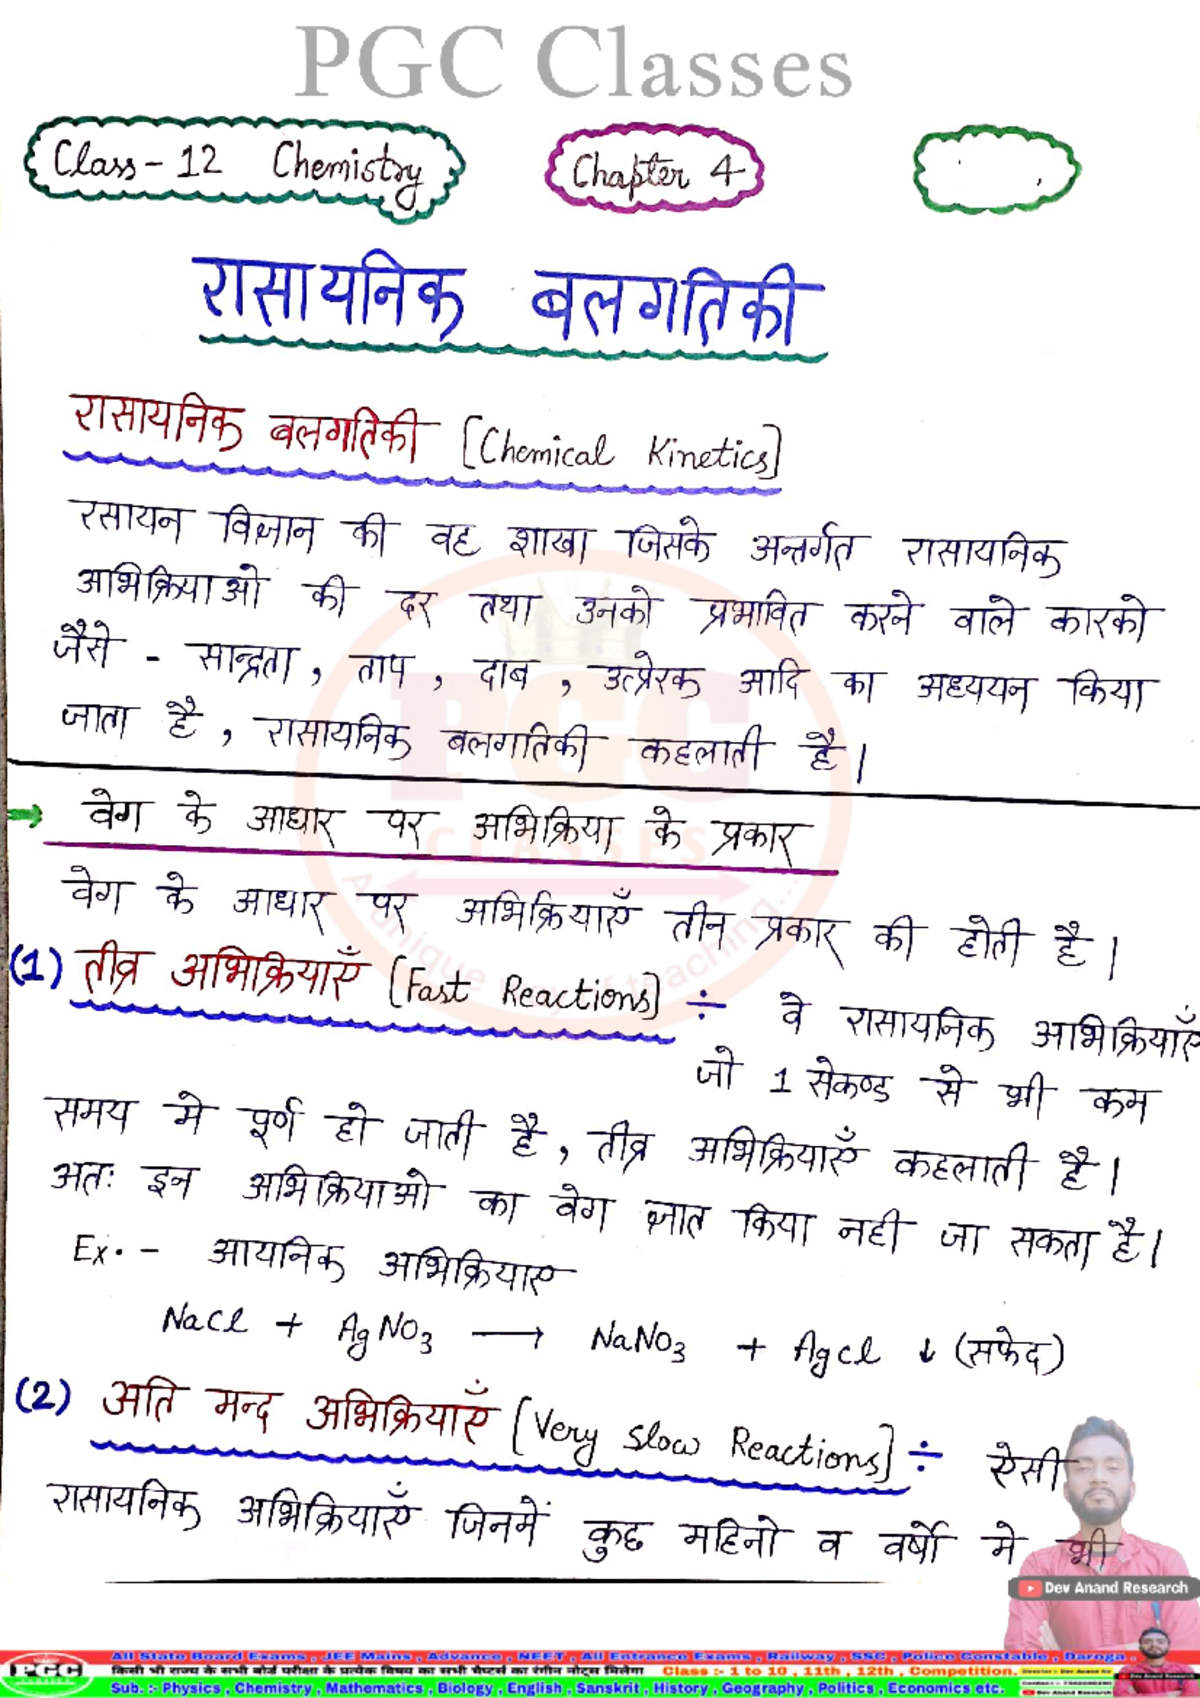 PGC Classes
Class - 12 Chemistry
Chapter 4
रासायनिक बलगतिकी
रासायनिक बलगतिकी [Chemical Kinetics]
रसायन विज्ञान की वह शाखा जिसके अन्तर्गत रासायनिक
अभिक्रियाओ की दर तथा उनको प्रभावित करने वाले कारको
जैसे - सान्द्रता, ताप, दाब, उत्प्रेरक आदि का अध्ययन किया
जाता है, रासायनिक बलगतिकी कहलाती है।
→ वेग के आधार पर अभिक्रिया के प्रकार
वेग के आधार पर अभिक्रियाएँ तीन प्रकार की होती है।
(1) तीव्र अभिक्रियाएँ [Fast Reactions] ÷ वे रासायनिक अभिक्रियाएँ
जो 1 सेकण्ड से भी कम
समय मे पूर्ण हो जाती है, तीव्र अभिक्रियाएँ कहलाती है।
अतः इन अभिक्रियाओ का वेग ज्ञात किया नही जा सकता है।
Ex. - आयनिक अभिक्रियाए
NaCl + AgNO₃ → NaNO₃ + AgCl ↓ (सफेद)
(2) अति मन्द अभिक्रियाएँ [Very Slow Reactions] ÷ ऐसी
रासायनिक अभिक्रियाएँ जिनमें कुछ महिनो व वर्षो मे भी
PGC
CLASSES
A unique way of teaching...
Dev Anand Research
PGC
All State Board Exams , JEE Mains , Advance , NEET , All Entrance Exams , Railway , SSC , Police Constable , Daroga .
किसी भी राज्य के सभी बोर्ड परीक्षा के प्रत्येक विषय का सभी चैप्टर्स का रंगीन नोट्स मिलेगा Class :- 1 to 10 , 11th , 12th , Competition.
Sub. :- Physics , Chemistry , Mathematics , Biology , English , Sanskrit , History , Geography , Politics , Economics etc.
Dev Anand Research